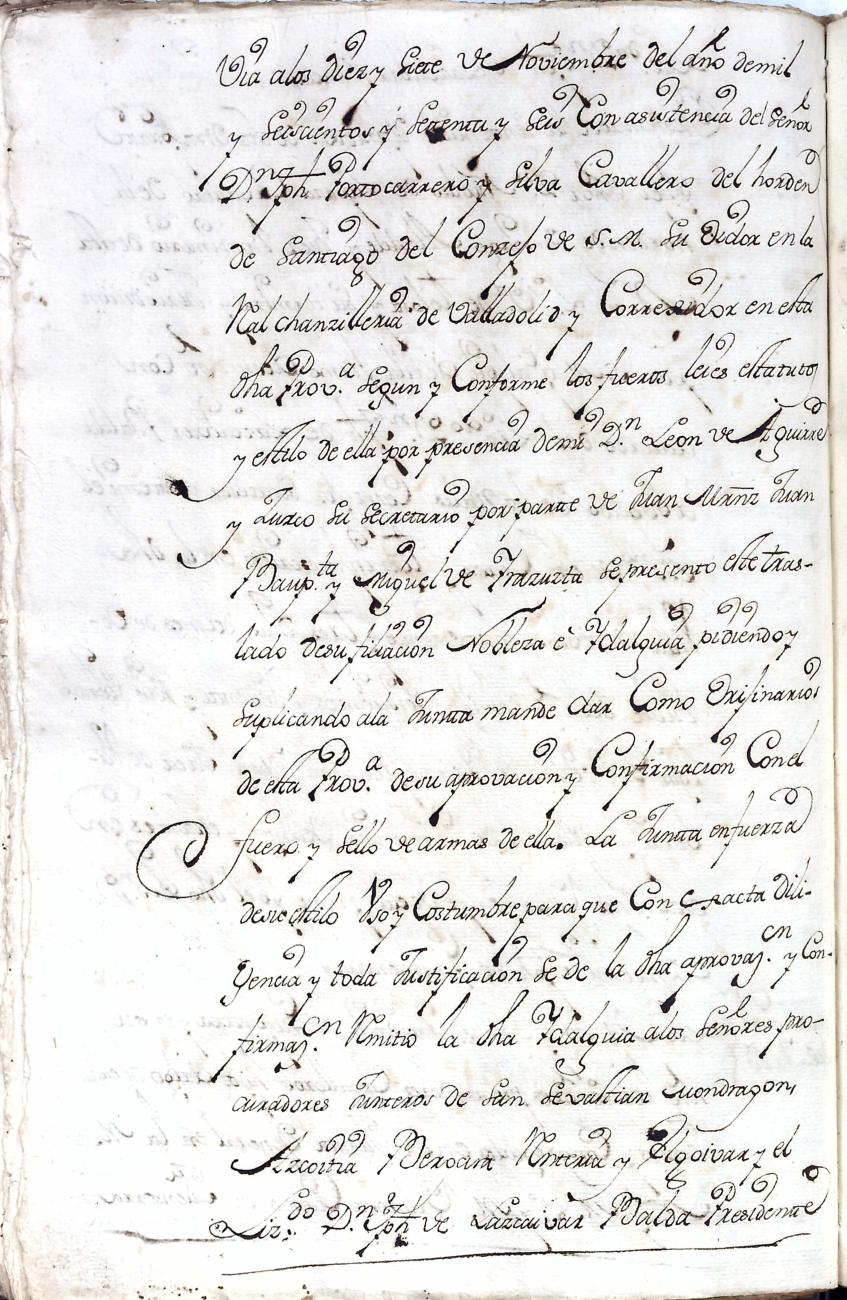 Via alos diez y Siete de Noviembre del año demil
y Seiscientos y Setenta y Seis Con asistencia del Señor
D.n Jph Portocarrero y Silva Cavallero del horden
de Santiago del Consejo de S. M. Su Oidor en la
Real chanzilleria de Valladolid y Correxidor en esta
dha Prov.a Segun y Conforme los fueros leies estatutos
y estilo de ella por presencia demi D.n Leon de Aguirre
y Zurco Su Secretario por parte de Juan Mrnz Juan
Baup.ta y Miguel de Yrazuzta Se presento este tras-
lado desu filiacion Nobleza e Ydalguia pidiendo y
Suplicando ala Junta mande dar Como Orijinarios
de esta Prov.a de su aprovacion y Confirmacion Con el
fuero y Sello de armas de ella. La Junta en fuerza
de su estilo Uso y Costumbre para que Con exacta dili-
gencia y toda Justificacion Se de la dha aprovaz.cn y Con-
firmaz.cn Remitio la dha Ydalguia alos Señores pro-
curadores Junteros de San Sevastian Mondragon,
Azcoitia Vergara Renteria y Elgoivar y el
Liz.do D.n Jph de Lazcaivar Balda Presidente